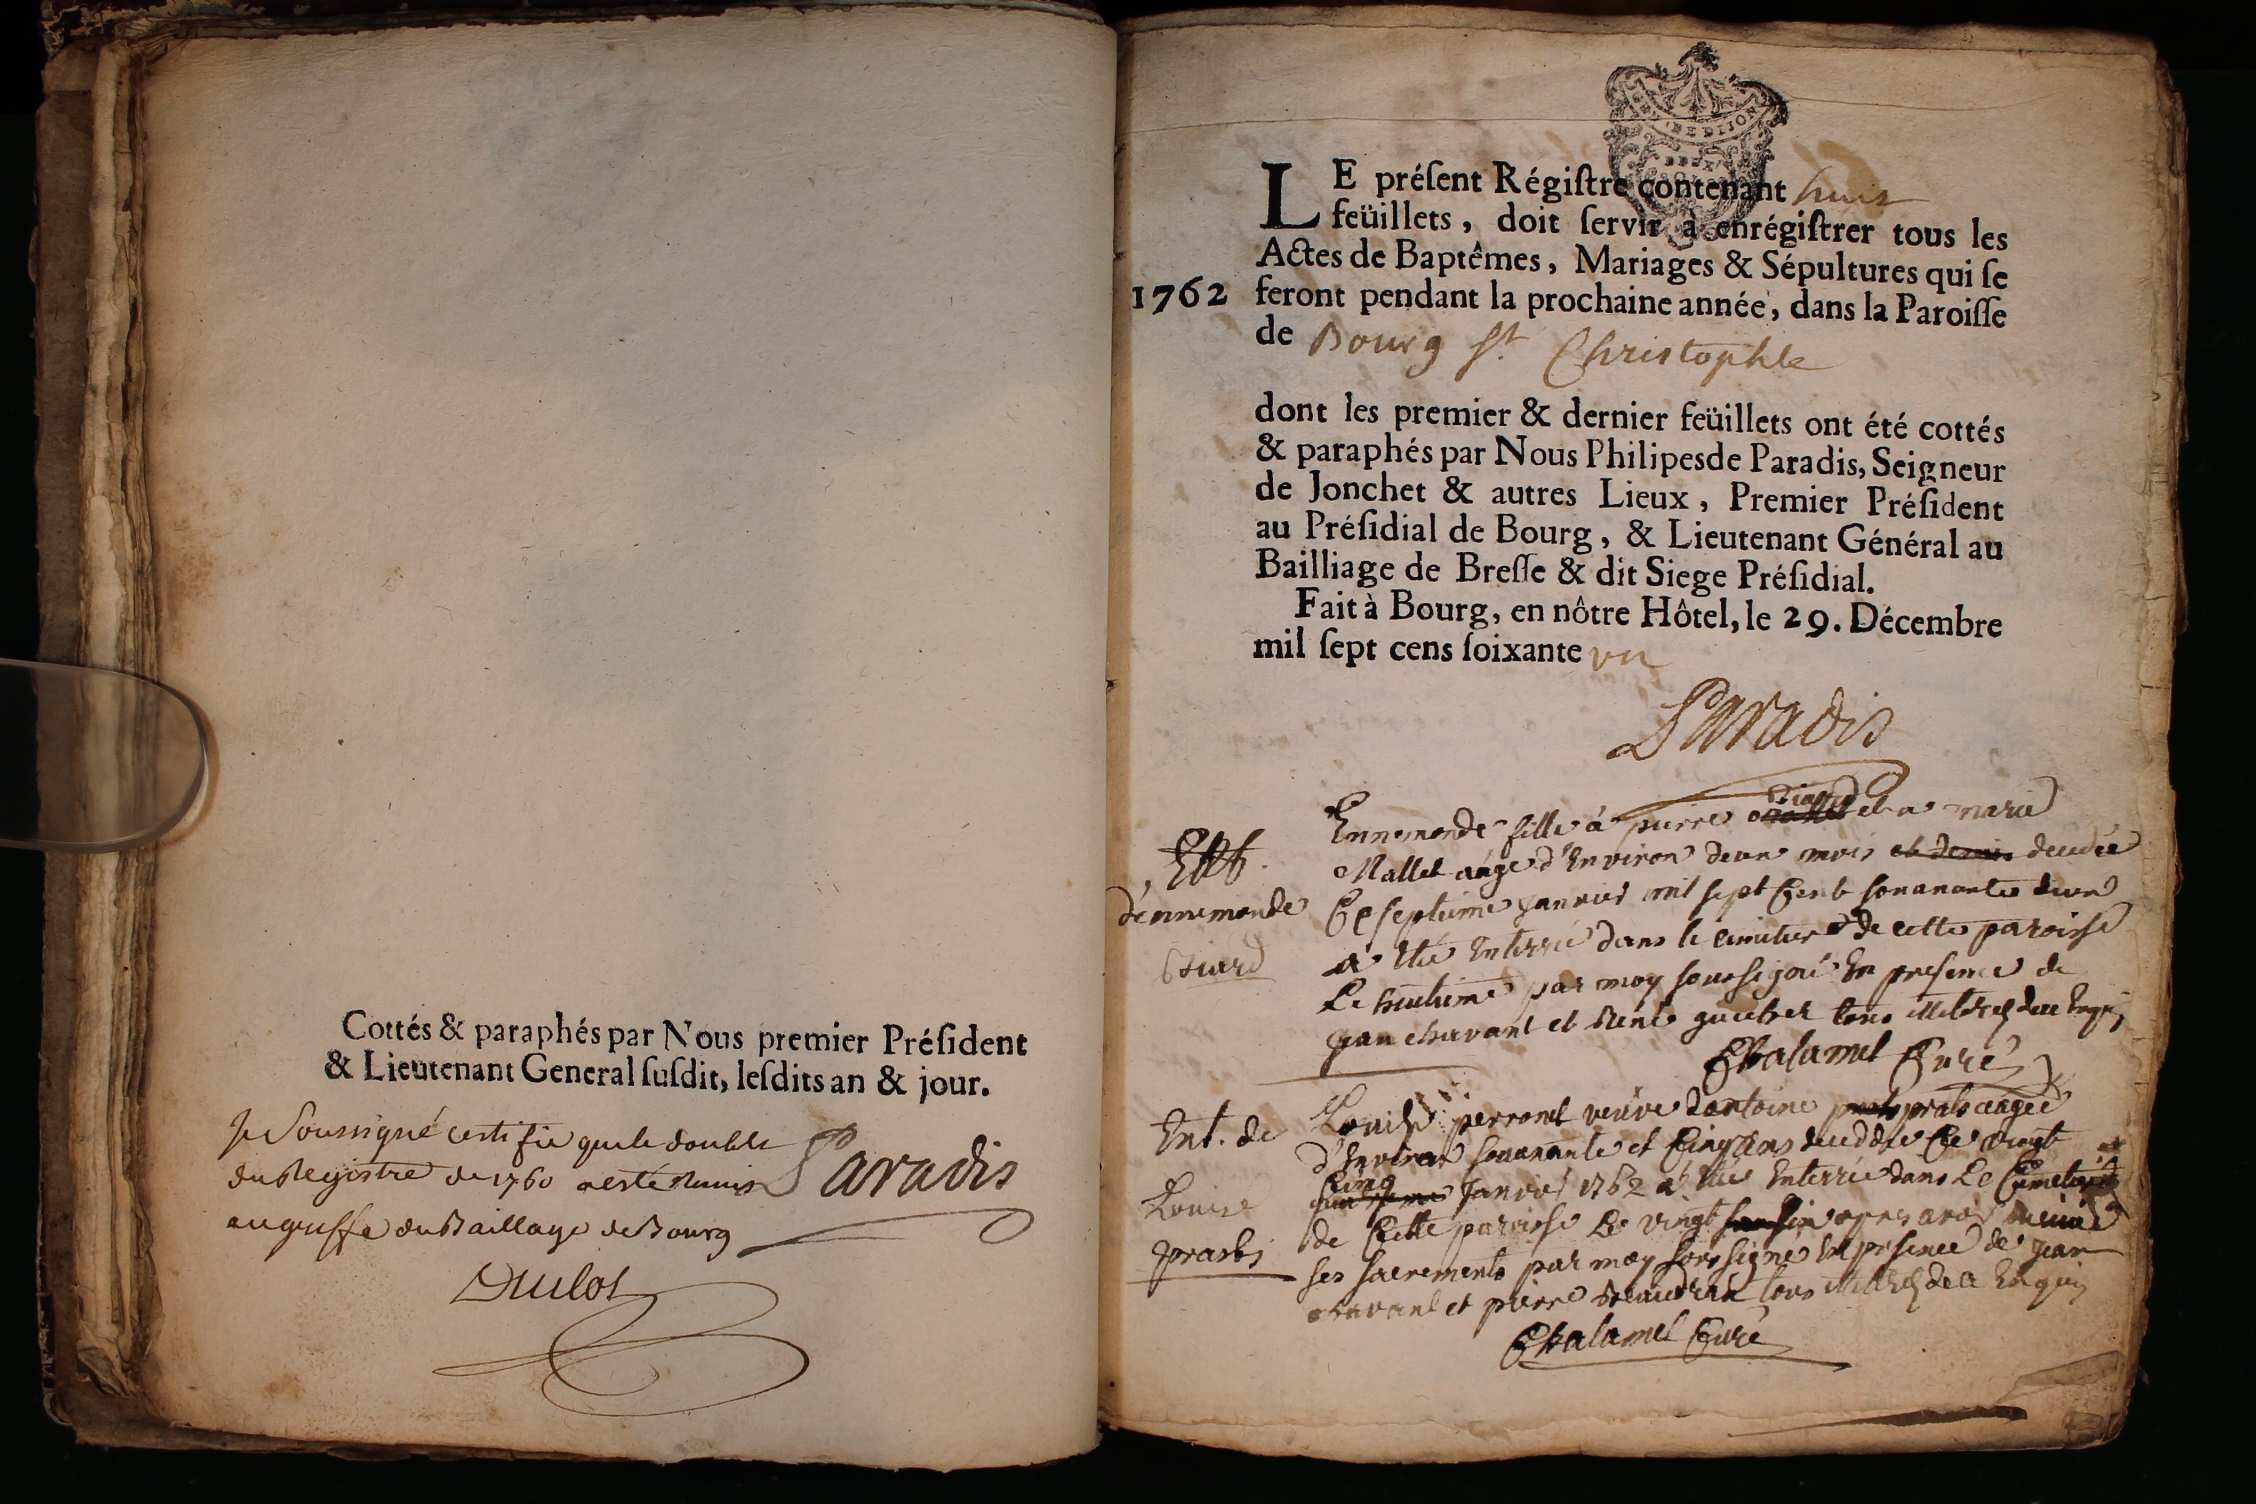 Cottés & paraphés par Nous premier Préſident
& Lieutenant General ſuſdit, leſdits an & jour.
Je Soussigné certifie que le double
du Registre de 1760 a esté Remis
au greffe du Baillage de Bourg
Paradis
Dulot
GEN. DE DIJON
DEUX
LE préſent Régiſtre contenant huit
feüillets, doit ſervir à enrégiſtrer tous les
Actes de Baptêmes, Mariages & Sépultures qui ſe
1762 feront pendant la prochaine année, dans la Paroiſſe
de Bourg St. Christophle
dont les premier & dernier feüillets ont été cottés
& paraphés par Nous Philipes de Paradis, Seigneur
de Jonchet & autres Lieux, Premier Préſident
au Préſidial de Bourg, & Lieutenant Général au
Bailliage de Breſſe & dit Siege Préſidial.
Fait à Bourg, en nôtre Hôtel, le 29. Décembre
mil ſept cens ſoixante un
Paradis
d'ennemonde
Ennemonde fille à pierre et a marie
Mallet aagé d'Environ deux mois et demis decedée
Le septieme janvier mil sept Cent soixante deux
a été Enterrée dans le cimitiere de cette paroisse
Le huitieme par moy soussigné En presence de
jean chavant et René tous
Chalamel Curé
Ent. de
Louise
prasts
Louise perronet veuve d'antoine prats aagée
d'Environ soixante et Cinq ans decedée Le vingt
Cinq janvier 1762 a été Enterrée dans Le Cimetiere
de Cette paroisse Le vingt apres avoir
ses sacrements par moy soussigné En presence de jean
chavant et pierre tous
Chalamel Curé